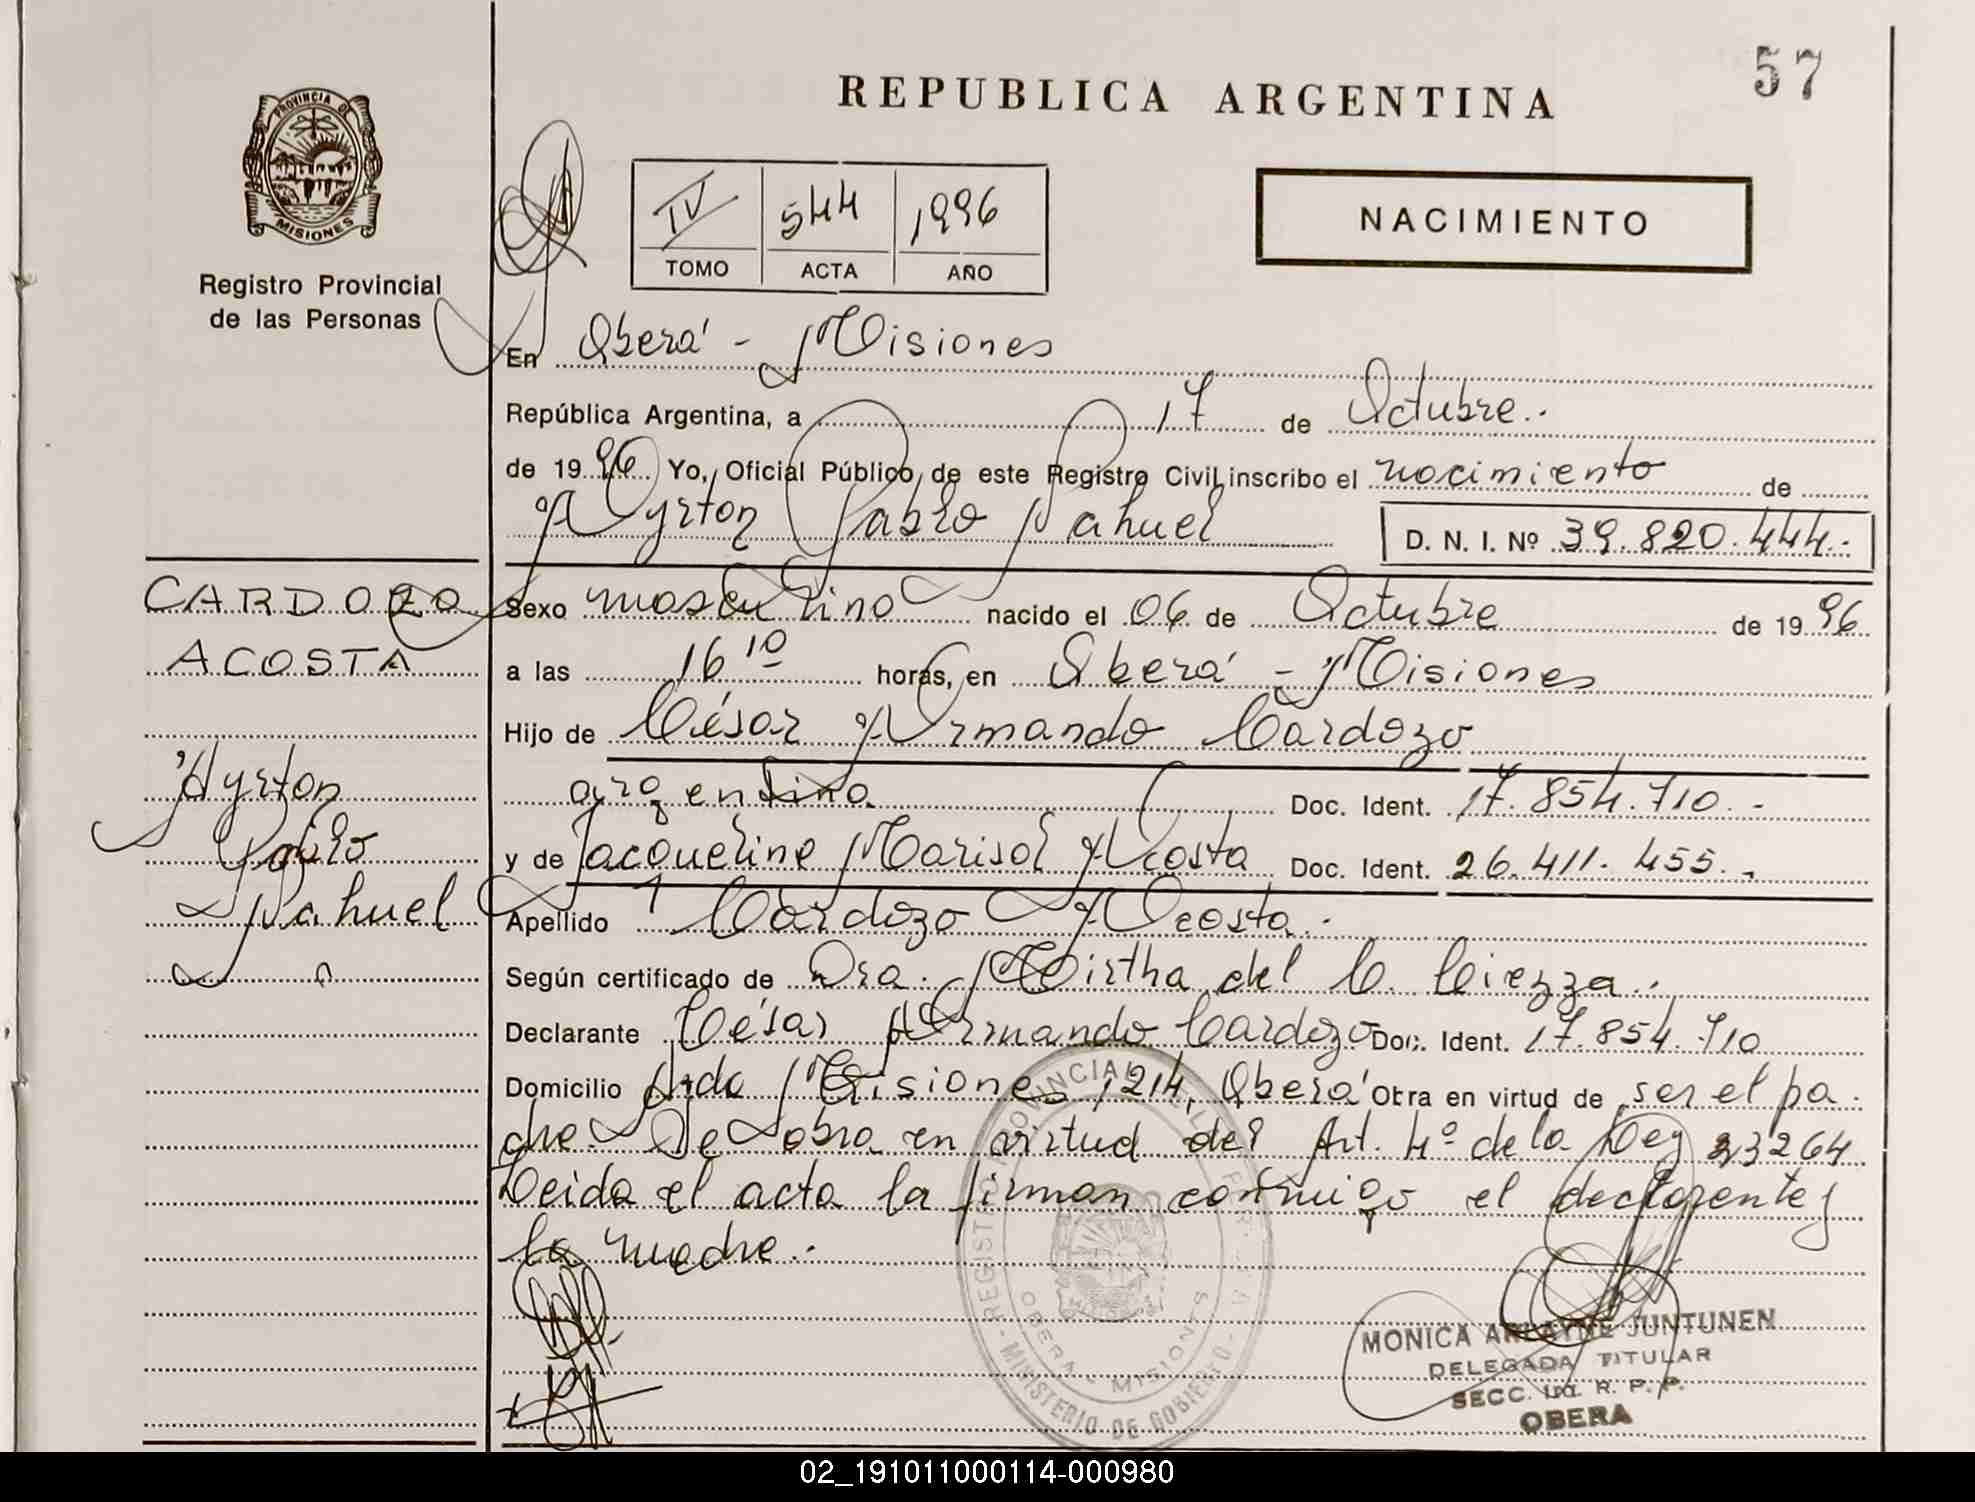 57
REPUBLICA ARGENTINA
PROVINCIA DE
MISIONES
Registro Provincial
de las Personas
IV 544 1996
TOMO ACTA AÑO
NACIMIENTO
En Oberá - Misiones
República Argentina, a 17 de Octubre.
de 1996 Yo, Oficial Público, de este Registro Civil inscribo el nacimiento de
Ayrton Pablo Nahuel D. N. I. Nº 39.820.444.-
CARDOZO
ACOSTA
Ayrton
Pablo
Nahuel
Sexo masculino nacido el 06 de Octubre de 1996
a las 16 10 horas, en Oberá - Misiones
Hijo de César Armando Cardozo
argentino Doc. Ident. 17.854.710.-
y de Jacqueline Marisol Acosta Doc. Ident. 26.411.455.-
Apellido Cardozo Acosta.
Según certificado de Dra. Mirtha del C. Ciezza.
Declarante César Armando Cardozo Doc. Ident. 17.854.710
Domicilio Avda Misiones 1214, Oberá Obra en virtud de ser el pa-
dre. De obra en virtud del Art. 4º de la Ley 23264
Leida el acta la firman conmigo el declarante y
la madre.-
REGISTRO PROVINCIAL DE LAS PERSONAS
MINISTERIO DE GOBIERNO
OBERA - MISIONES
MONICA JUNTUNEN
DELEGADA TITULAR
SECC. R. P. P.
OBERA
02_191011000114-000980